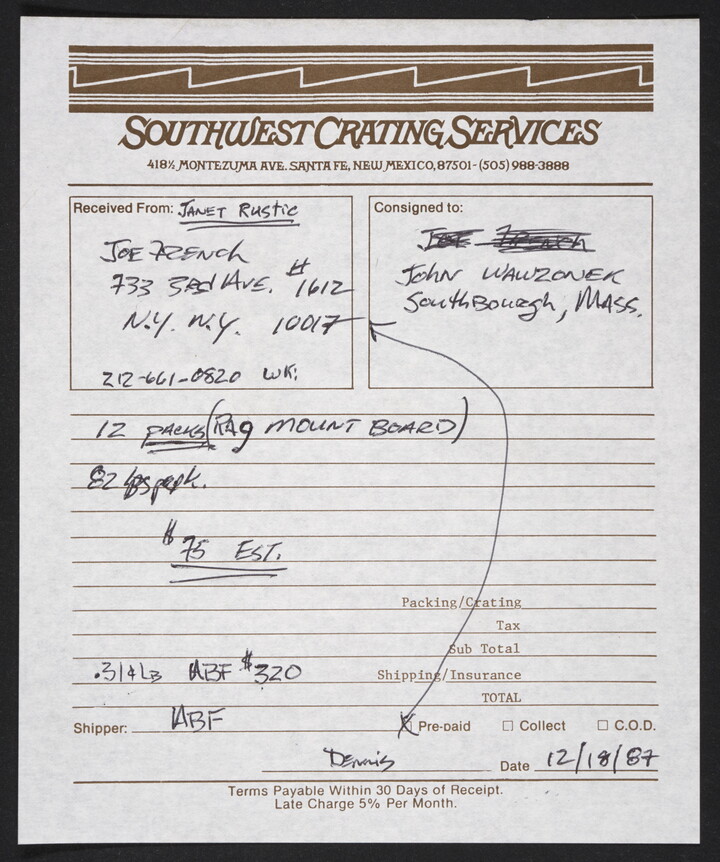 SOUTHWEST CRATING SERVICES
418½ MONTEZUMA AVE. SANTA FE, NEW MEXICO, 87501 - (505) 988-3888
Received From: JANET RUSTIC
JOE FRENCH
733 3Rd AVE. # 1612
N.Y. N.Y. 10017
212-661-0820 WK:
Consigned to:
JOE FRENCH
JOHN WAWZONEK
SouthBorough, MASS.
12 PACKS (RAg MOUNT BOARD)
82 lbs
$75 EST.
Packing/Crating
Tax
Sub Total
.314 LB ABF $320
Shipping/Insurance
TOTAL
Shipper: ABF
Pre-paid ☐ Collect ☐ C.O.D.
Dennis Date 12/18/87
Terms Payable Within 30 Days of Receipt.
Late Charge 5% Per Month.